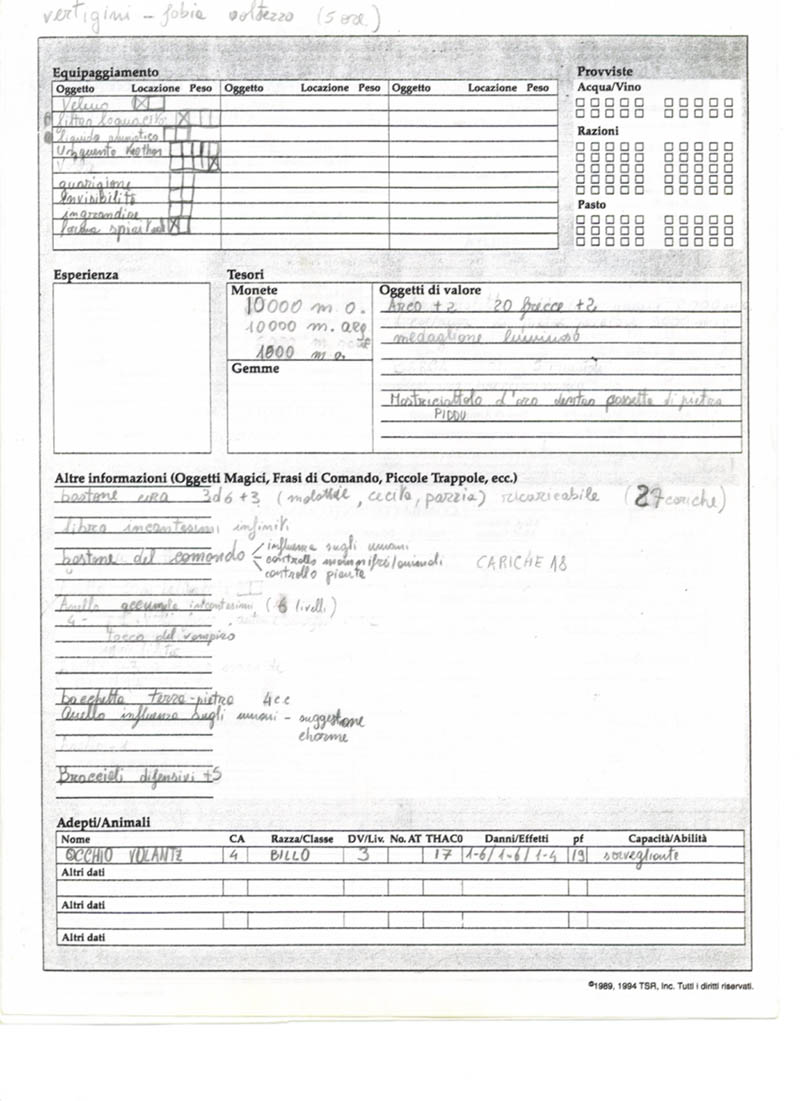 vertigini - fobia (5 ore)
Equipaggiamento
Oggetto Locazione Peso Oggetto Locazione Peso Oggetto Locazione Peso
Veleno
filtro loquacità
liquido aromatico
Unguento Keoghom
guarigione
invisibilità
ingrandire
forma
Provviste
Acqua/Vino
Razioni
Pasto
Esperienza
Tesori
Monete
10000 m o.
10000 m. arg
1500 m o.
Gemme
Oggetti di valore
Arco +2 20 frecce +2
medaglione luminoso
Mostriciattolo d'oro dentro di pietra
PIDDU
Altre informazioni (Oggetti Magici, Frasi di Comando, Piccole Trappole, ecc.)
bastone cura 3d6+3 (malattie, cecità, pazzia) ricaricabile (27 cariche)
libro incantesimi infiniti
bastone del comando
influenza sugli umani
controllo mammiferi/animali
controllo piante
CARICHE 18
Anello accumula incantesimi (6 livelli)
4 -
Tocco del vampiro
bacchetta terra-pietra 4cc
Anello influenza sugli umani - suggestione
charme
Bracciali difensivi +5
Adepti/Animali
Nome CA Razza/Classe DV/Liv. No. AT THAC0 Danni/Effetti pf Capacità/Abilità
OCCHIO VOLANTE 4 BILLO 3 17 1-6/1-6/1-4 19 sorvegliante
Altri dati
Altri dati
Altri dati
©1989, 1994 TSR, Inc. Tutti i diritti riservati.